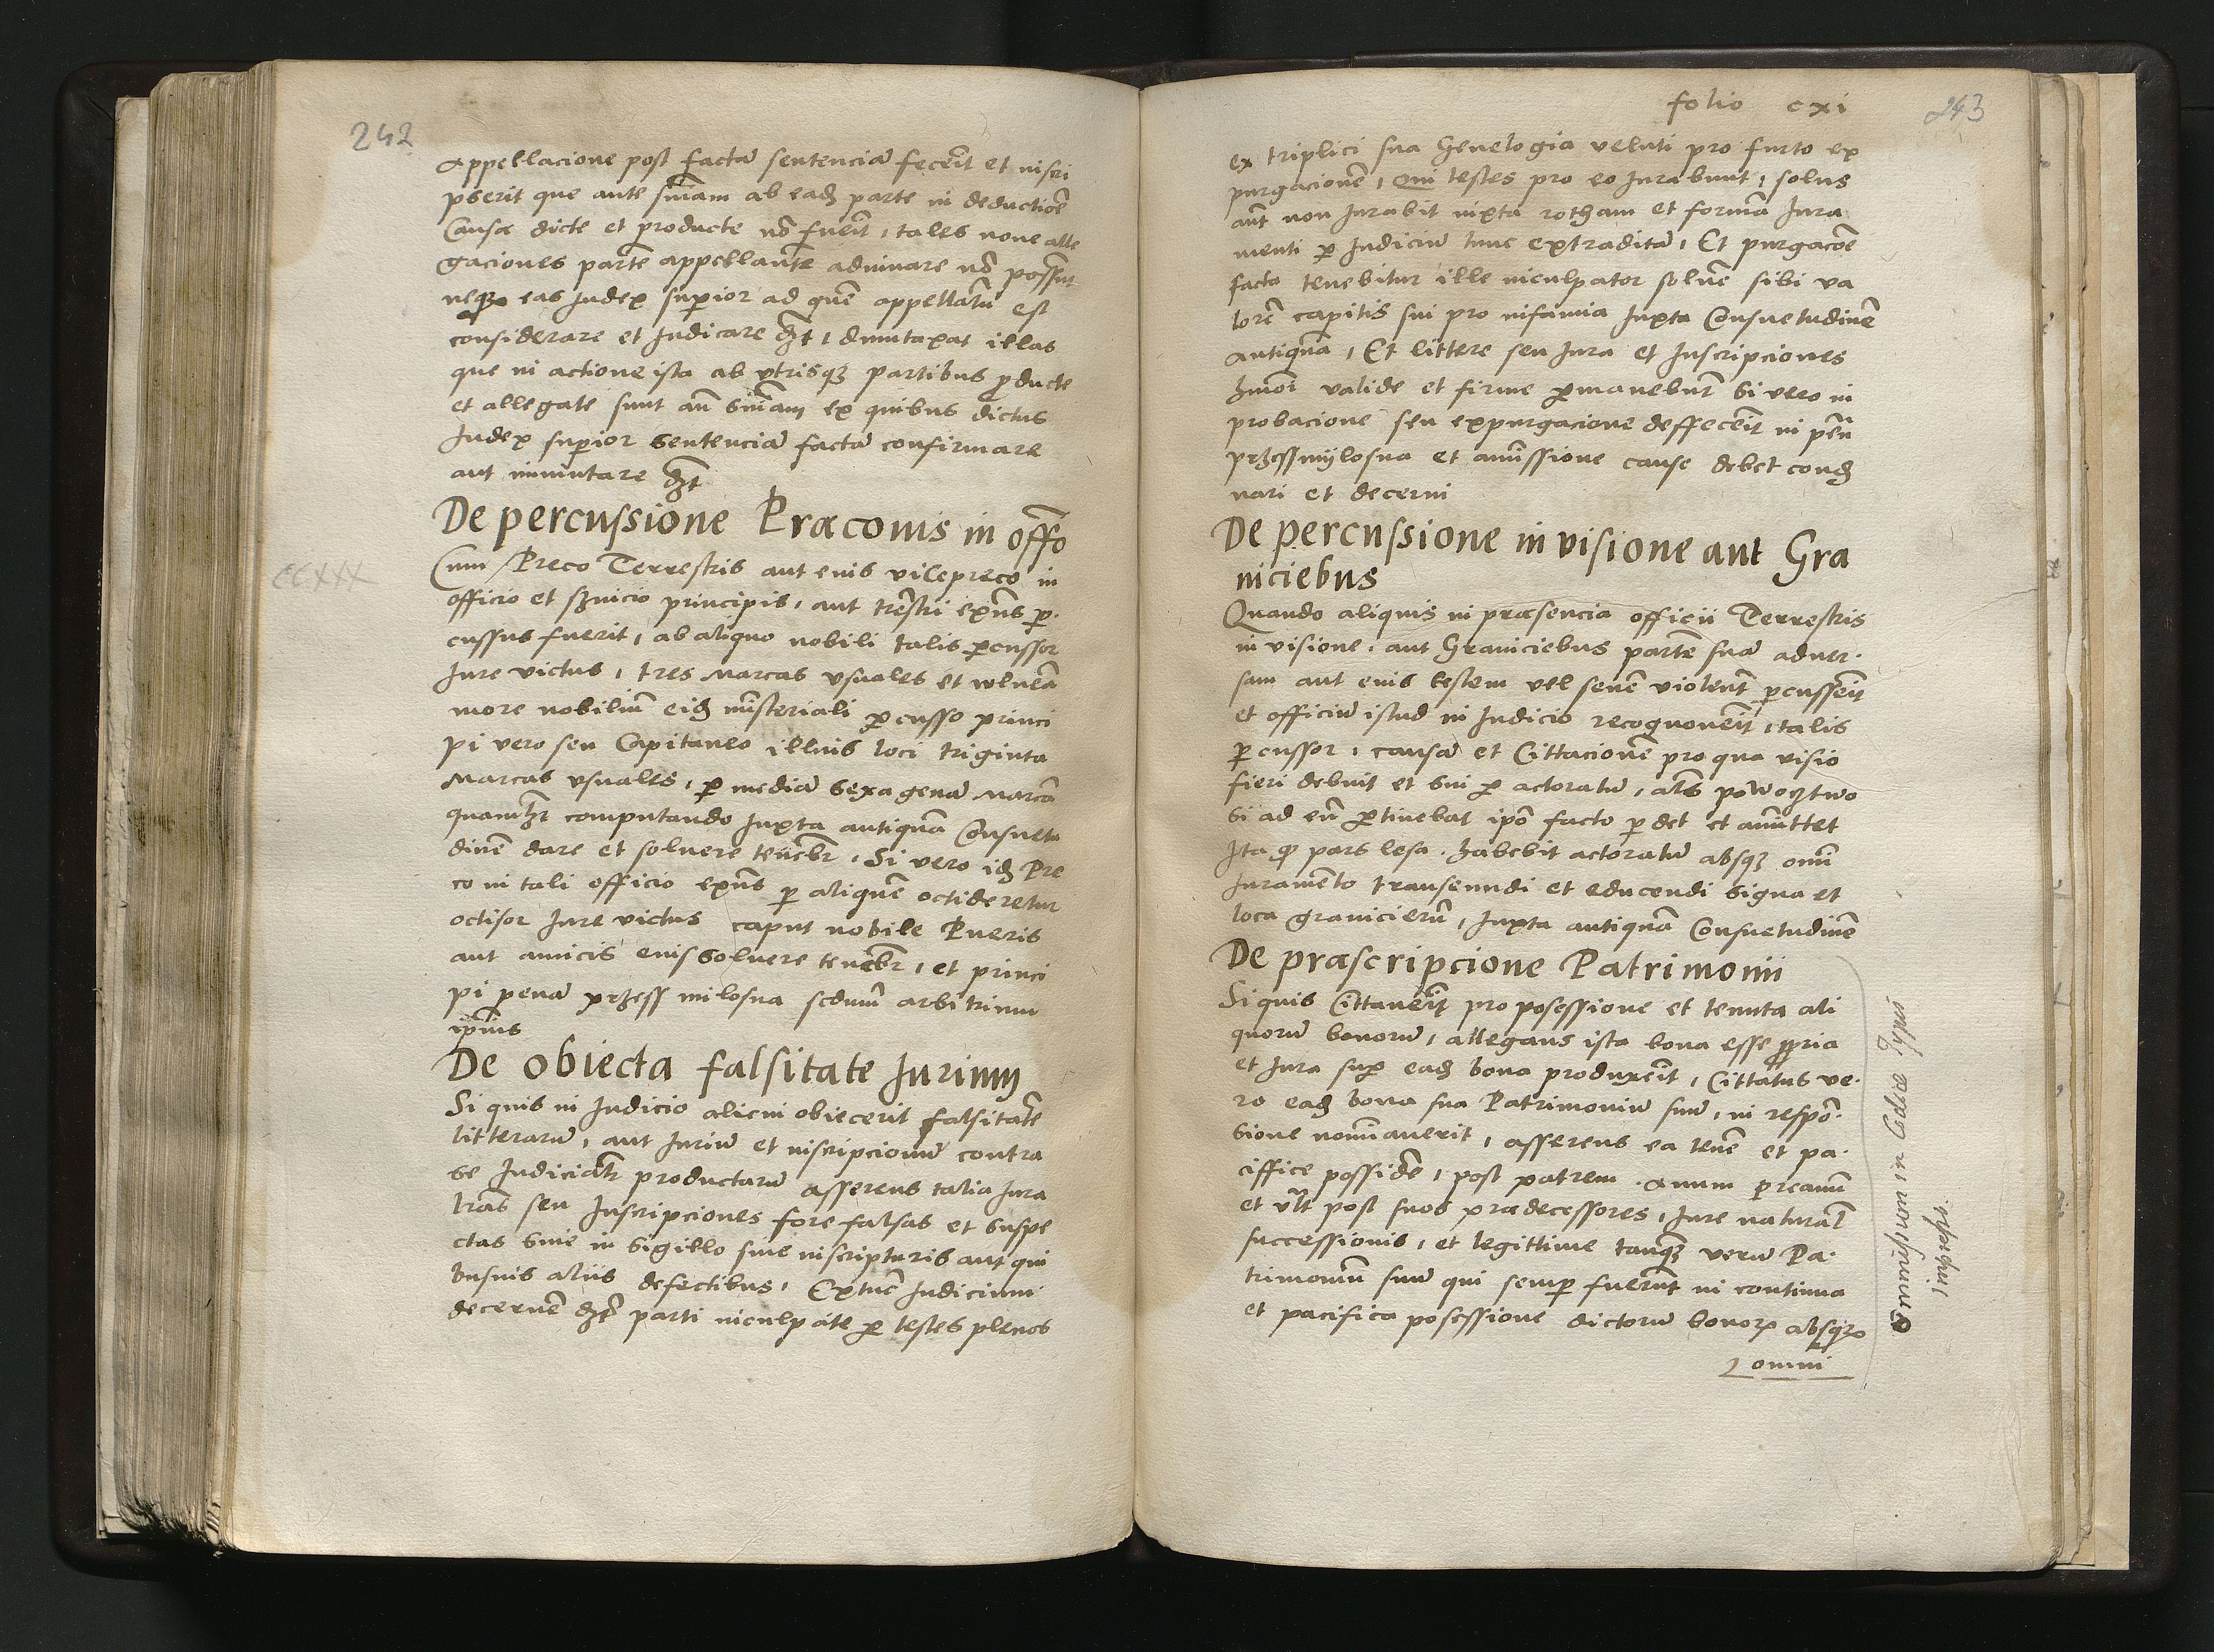 242
Appellacione post factā sentenciā fecerit et inscri
pserit que ante sn̄iam ab eadē parte in deductioē
Causæ dicte et producte nō fuerīt, tales nove alle
gaciones partē appellantē adiuvare nō possunt
neqȝ eas Judex superior ad quē appellatū est
considerare et Judicare dȝt, dumtaxat illas
que in actione ista ab vtrisqȝ partibus ꝓducte
et allegate sunt añ sn̄iam ex quibus dictus
Judex superior sentenciā factā confirmare
aut immutare dȝt
De percussione Præconis in offō
CCXXX
Cum Preco Terrestris aut eius vicepreco in
officio et ẜuicio principis, aut trēstri exn̄s ꝑ
cussus fuerit, ab aliquo nobili talis ꝑcussor
Jure victus, tres Marcas vsuales et wlnerā
more nobiliū eidē misteriali ꝑcusso princi
pi vero seu Capitaneo illius loci triginta
Marcas vsuales, ꝑ mediā sexagenā Marcā
quamlȝt computando Juxta antiquā Consuetu
dinē dare et soluere tenebr̄. Si vero idē Pre
co in tali officio exn̄s ꝑ aliquē octideretur
octisor Jure victus caput nobile Pueris
aut amicis eius soluere tenebr̄, et princi
pi penā przess milosna scdum arbitrium
ipsius
De obiecta falsitate Jurium
Si quis in Judicio alicui obiecerit falsitatē
litterarū, aut Juriū et inscripcionum contra
se Judicialr̄ productarū asserens talia Jura
lrās seu Inscripciones fore falsas et suspe
ctas siue in sigillo siue in scripturis aut qui
busuis aliis defectibus, Extunē Judicium
decernē dȝt parti inculpate ꝑ testes plenos
folio cxi
243
ex triplici sua Genelogia veluti pro furto ex
purgacionē, qui testes pro eo Jurabunt, solus
aūt non Jurabit iuxta rotham et formā Jura
menti ꝑ Judiciū tunc extraditā, Et purgacōē
facta tenebitur ille inculpator soluē sibi va
lorē capitis sui pro infamia Juxta Consuetudinē
antiquā, Et littere seu Jura et Inscripciones
hmōi valide et firme ꝑmanebūt si vero in
probacione seu expurgacione deffecerit in penā
przessmylosna et amissione cause debet condē
nari et decerni
De percussione in visione aut Gra
niciebus
Quando aliquis in præsencia officii Terrestris
in visione, aut Graniciebus partē suā aduer
sam aut eius testem vel senē violentr̄ ꝑcusserit
et officiū istud in Judicio recognouerit, talis
ꝑcussor, causā et Cittacionē pro qua visio
fieri debuit et sui ꝑ actoratū, als powoztwo
si ad eū ꝑtinebat ipō facto ꝑdet et amittet
Ita ꝙ pars lesa, habebit actoratū absqȝ omī
Juramento transeundi et educendi signa et
loca granicierū, Juxta antiquā Consuetudinē
De præscripcione Patrimonii
Si quis Cittauerit pro posessione et tenuta ali
quorū bonorū, allegans ista bona esse ꝓpria
et Jura suꝑ eadē bona produxerit, Cittatus ve
ro eadē bona sua Patrimoniū suū, in respō
sione nominauerit, asserens ea tenē et pa
ciffice possidē, post patrem, auum preauū
et vlt post suos prædecessores, Jure naturał
successionis, et legittime tanqȝ verū Pa
trimoniū suū qui semꝑ fuerunt in continua
et pacifica posessione dictorū bonoꝝ absqȝ
omni
omissum in Codice Typis
impresso.